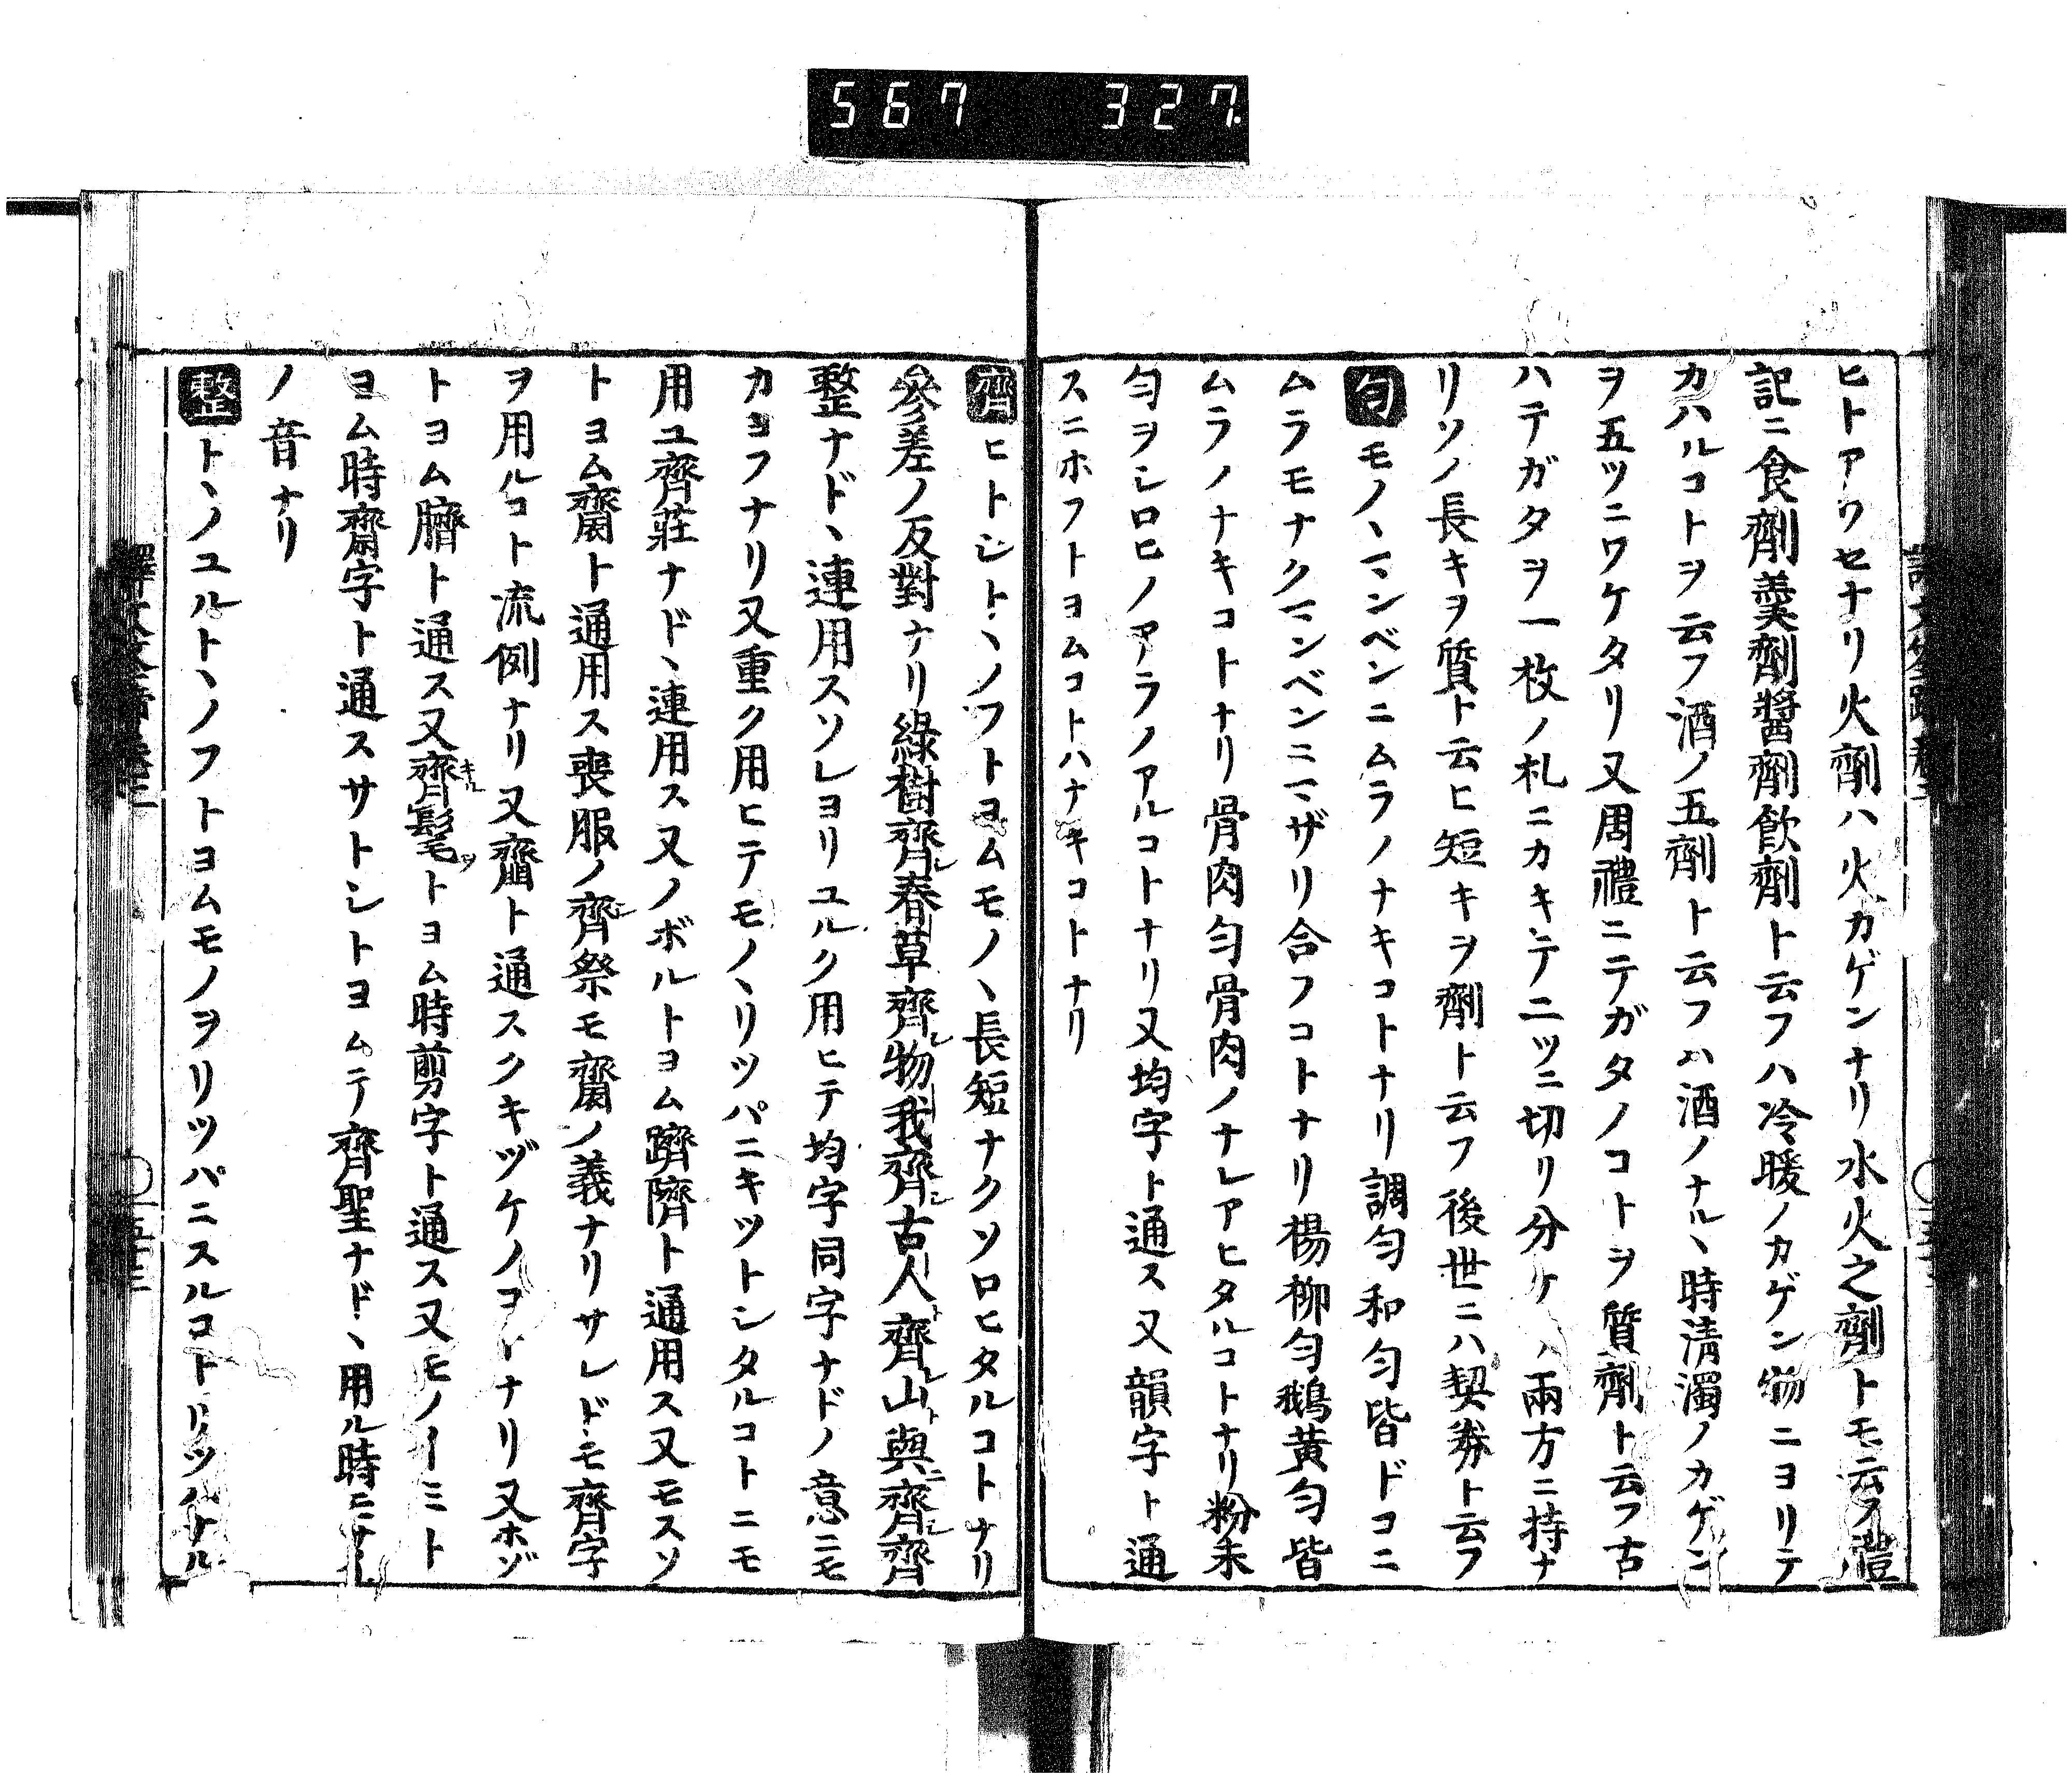 567 327
ヒトアワセナリ火劑ハ火カゲンナリ水火之劑トモ云フ禮
記ニ食劑羹劑醬劑飲劑ト云フハ冷暖ノカゲン物ニヨリテ
カハルコトヲ云フ酒ノ五劑ト云フハ酒ノナルヽ時清濁ノカゲン
ヲ五ツニワケタリ又周禮ニテガタノコトヲ質劑ト云フ古
ハテガタヲ一枚ノ札ニカキテ二ツニ切リ分ケ兩方ニ持ナ
リソノ長キヲ質ト云ヒ短キヲ劑ト云フ後世ニハ契券ト云フ
勻モノヽマンベンニムラノナキコトナリ調勻和勻皆ドコニ
ムラモナクマンベンニマザリ合フコトナリ楊柳勻鵝黄勻皆
ムラノナキコトナリ骨肉勻骨肉ノナレアヒタルコトナリ粉未
勻ヲシロヒノアラノアルコトナリ又均字ト通ス又韻字ト通
スニホフトヨムコトハナキコトナリ
齊ヒトシトヽノフトヨムモノヽ長短ナクソロヒタルコトナリ
參差ノ反對ナリ綠樹齊シ春草齊シ物我齊シ古人齊シ山與齊シ齊
整ナドヽ連用スソレヨリユルク用ヒテ均字同字ナドノ意ニモ
カヨフナリ又重ク用ヒテモノヽリツパニキツトシタルコトニモ
用ユ齊莊ナドヽ連用ス又ノボルトヨム躋隮ト通用ス又モスソ
トヨム齋ト通用ス喪服ノ齊祭モ齋ノ義ナリサレドモ齊字
ヲ用ルコト流例ナリ又齏ト通スクキヅケノコトナリ又ホゾ
トヨム臍ト通ス又齊髦トヨム時剪字ト通ス又モノイミト
ヨム時齋字ト通スサトシトヨムテ齊聖ナドヽ用ル時ニサイ
ノ音ナリ
整トヽノユルトヽノフトヨムモノヲリツパニスルコトリツパナル